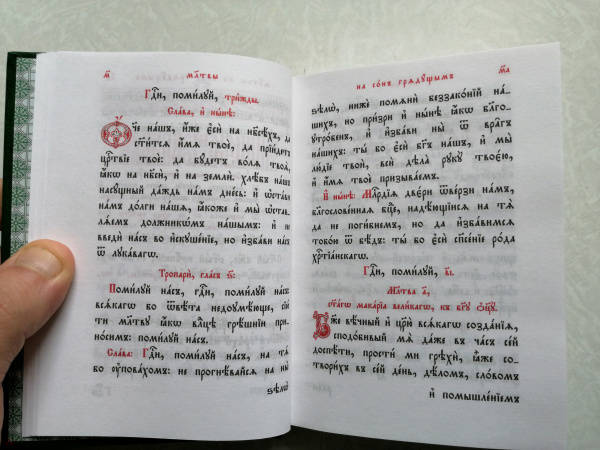 м҃ мл҃твы
Гдⷭ҇и, поми́луй, три́жды.
Сла́ва, и҆ ны́нѣ:
Ѻ҆́ч҃е на́шъ, и҆́же є҆сѝ на нб҃сѣ́хъ, да
ст҃и́тсѧ и҆́мѧ твоѐ, да прїи́детъ
црⷭ҇твїе твоѐ: да бꙋ́детъ во́лѧ твоѧ̀,
ꙗ҆́кѡ на нб҃сѝ, и҆ на землѝ. хлѣ́бъ на́шъ
насꙋ́щный да́ждь на́мъ дне́сь: и҆ ѡ҆ста́ви
на́мъ до́лги на́шѧ, ꙗ҆́коже и҆ мы̀ ѡ҆ста-
влѧ́емъ должникѡ́мъ на́шымъ: и҆ не
введѝ на́съ во и҆скꙋше́нїе, но и҆зба́ви на́съ
ѿ лꙋка́вагѡ.
Тропарѝ, гла́съ ѕ҃:
Поми́лꙋй на́съ, гдⷭ҇и, поми́лꙋй на́съ:
всѧ́кагѡ бо ѿвѣ́та недоꙋмѣ́юще, сїю́
ти мл҃твꙋ ꙗ҆́кѡ влⷣцѣ грѣ́шнїи при-
но́симъ: поми́лꙋй на́съ.
Сла́ва: Гдⷭ҇и, поми́лꙋй на́съ, на тѧ́
бо ᲂу҆пова́хомъ: не прогнѣ́вайсѧ на ны̀
ѕѣлѡ̀
на со́нъ грѧдꙋ́щымъ м҃а
ѕѣлѡ̀, нижѐ помѧнѝ беззако́нїй на́-
шихъ, но при́зри и҆ ны́нѣ ꙗ҆́кѡ блго-
ꙋтро́бенъ, и҆ и҆зба́ви ны̀ ѿ вра̑гъ
на́шихъ: ты́ бо є҆сѝ бг҃ъ на́шъ, и҆ мы̀
лю́дїе твоѝ, всѝ дѣла̀ рꙋкꙋ̀ твоє́ю,
и҆ и҆́мѧ твоѐ призыва́емъ.
И҆ ны́нѣ: Млⷭ҇рдїѧ двє́ри ѿве́рзи на́мъ,
блгⷭ҇ове́ннаѧ бцⷣе, надѣ́ющїисѧ на тѧ̀
да не поги́бнемъ, но да и҆зба́вимсѧ
тобо́ю ѿ бѣ́дъ: ты́ бо є҆сѝ сп҃се́нїе ро́да
хрⷭ҇тїа́нскагѡ.
Гдⷭ҇и, поми́лꙋй, в҃і.
Мл҃тва а҃,
ст҃а́гѡ мака́рїа вели́кагѡ, къ бг҃ꙋ ѻ҆ц҃ꙋ̀.
Бж҃е вѣ́чный и҆ цр҃ю̀ всѧ́кагѡ созда́нїѧ,
сподо́бивый мѧ̀ да́же въ ча́съ се́й
доспѣ́ти, простѝ ми грѣхѝ, ꙗ҆̀же со-
твори́хъ въ се́й де́нь, дѣ́ломъ, сло́вомъ
и҆ помышле́нїемъ